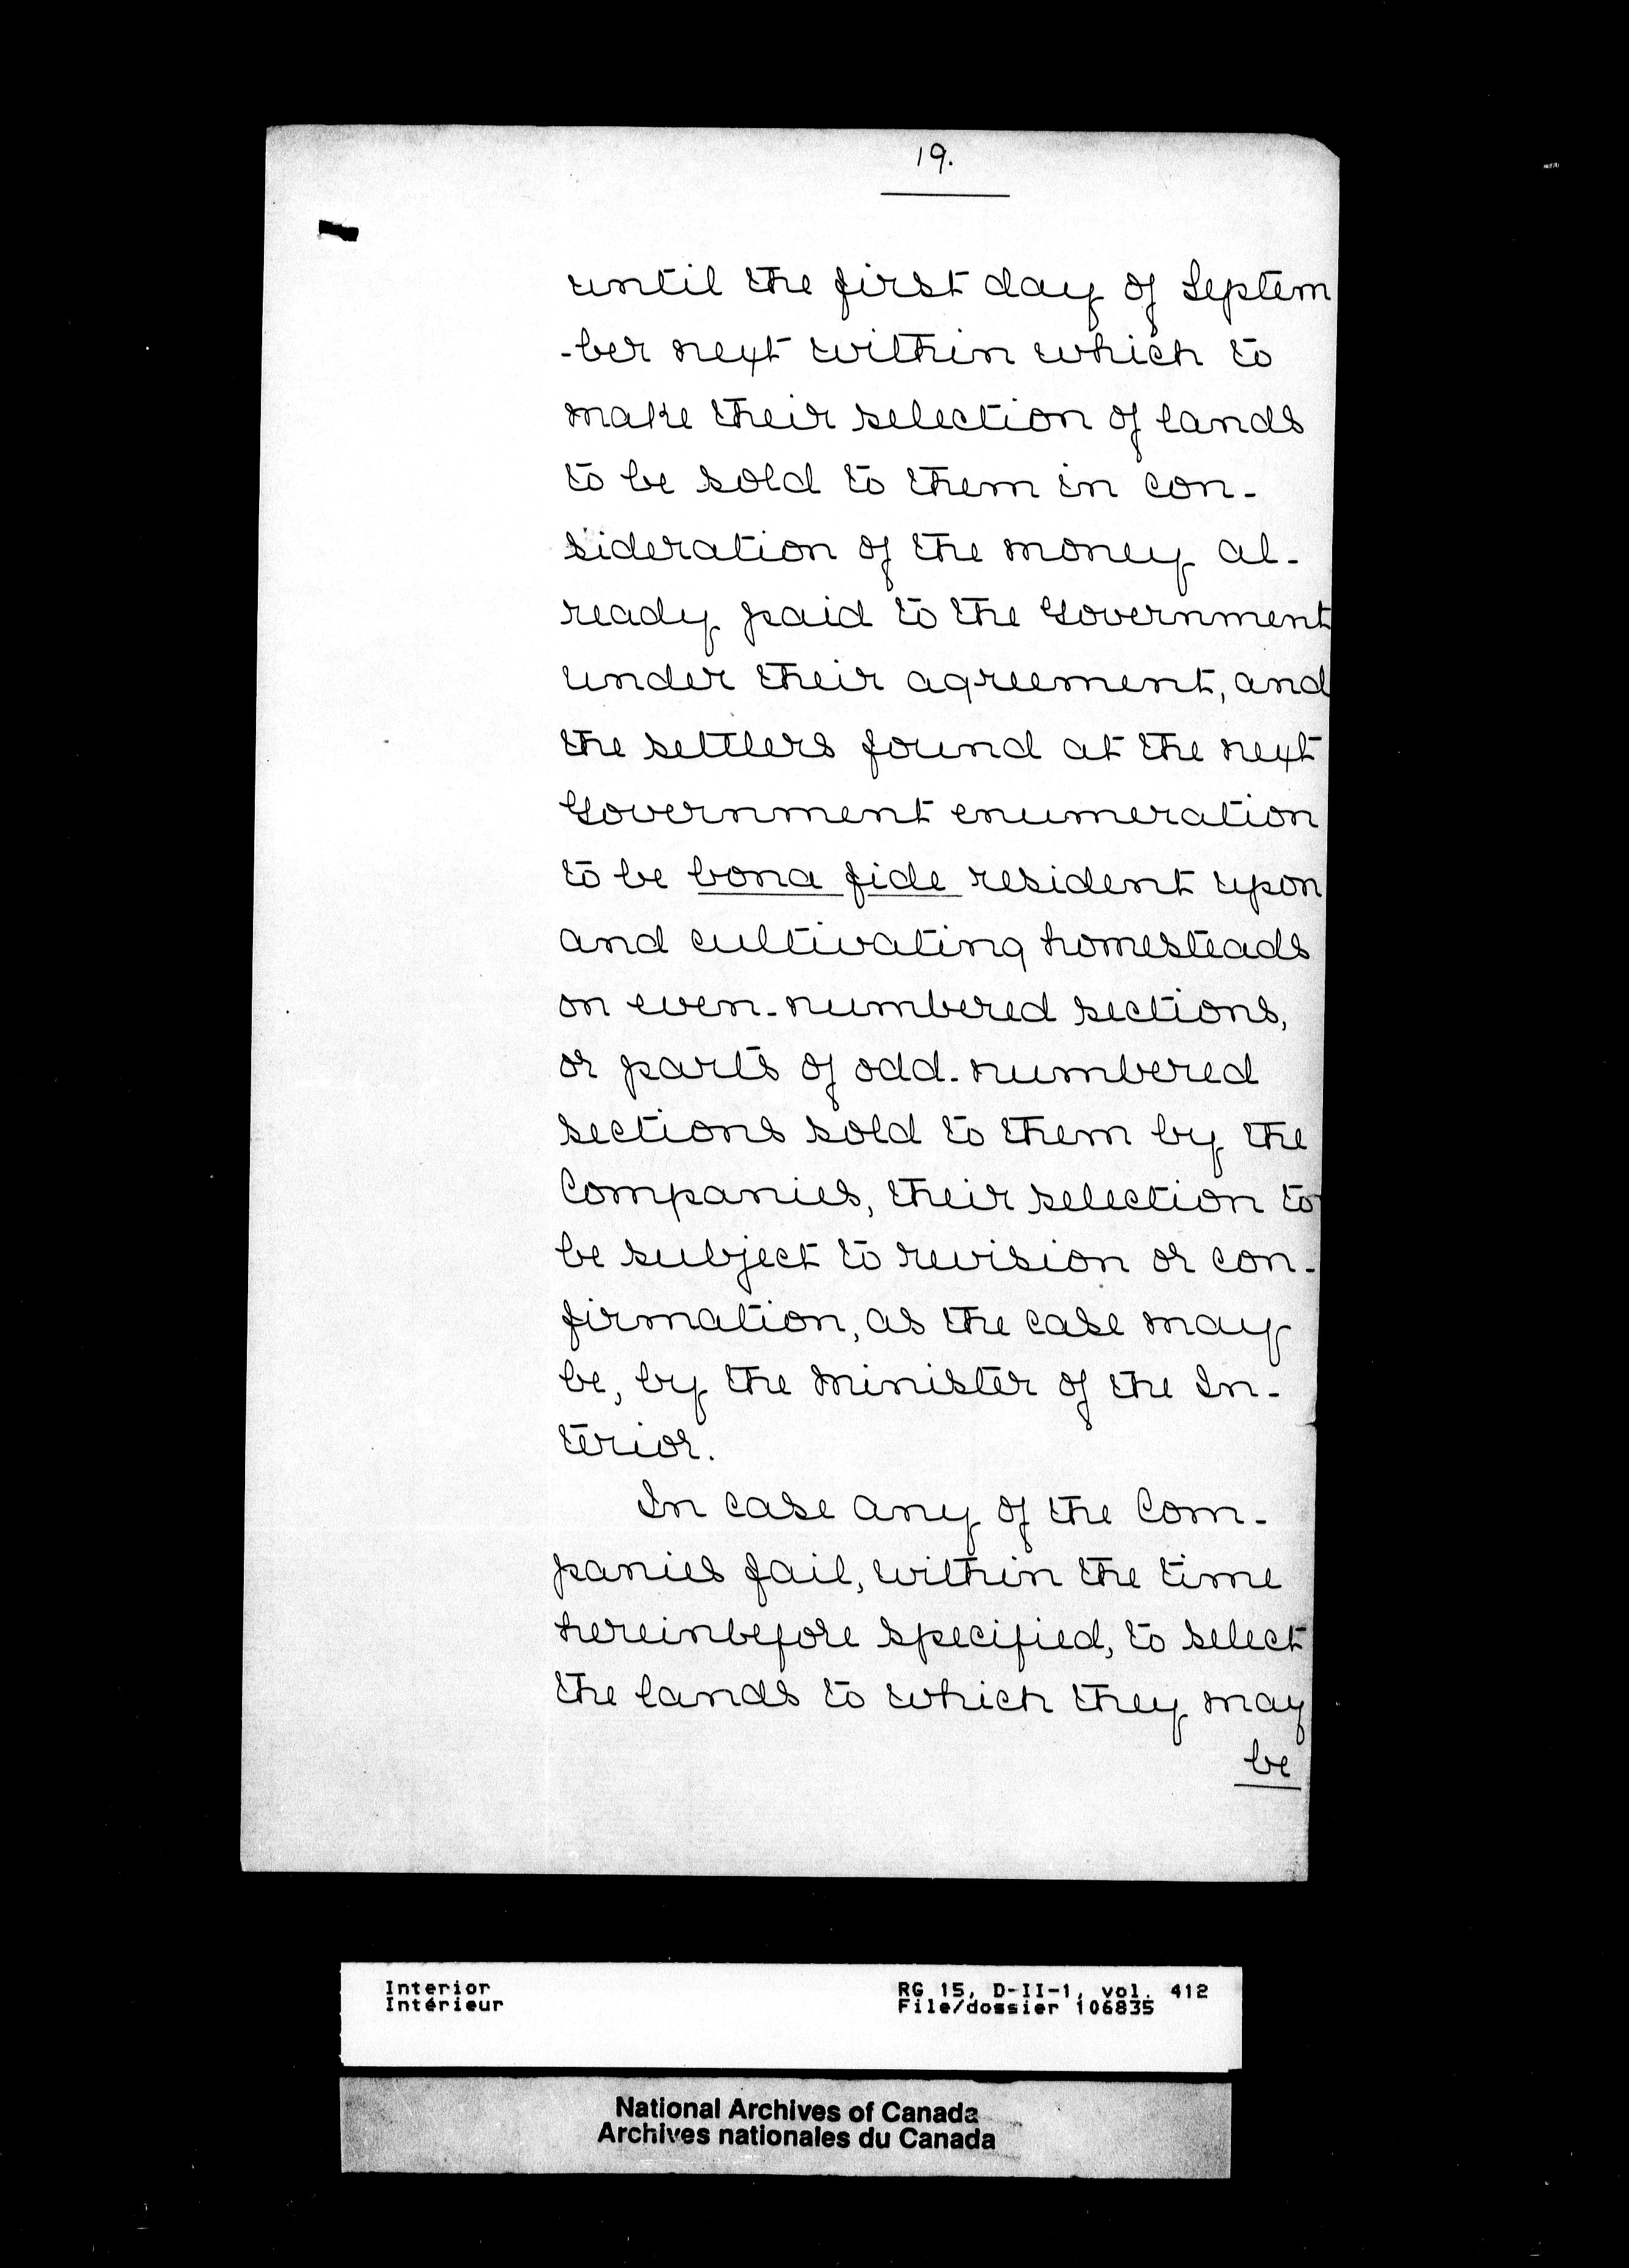 19.
until the first day of Septem
-ber next within which to
make their selection of lands
to be sold to them in con-
sideration of the money al-
ready paid to the Government
under their agreement, and
the settlers found at the next
Government enumeration
to be bona fide resident upon
and cultivating homesteads
on even-numbered sections,
or parts of odd-numbered
sections sold to them by the
Companies, their selection to
be subject to revision or con-
firmation, as the case may
be, by the Minister of the In-
terior.
In case any of the Com-
panies fail, within the time
hereinbefore specified, to select
the lands to which they may
be
Interior
Intérieur
RG 15, D-II-1, vol. 412
File/dossier 106835
National Archives of Canada
Archives nationales du Canada